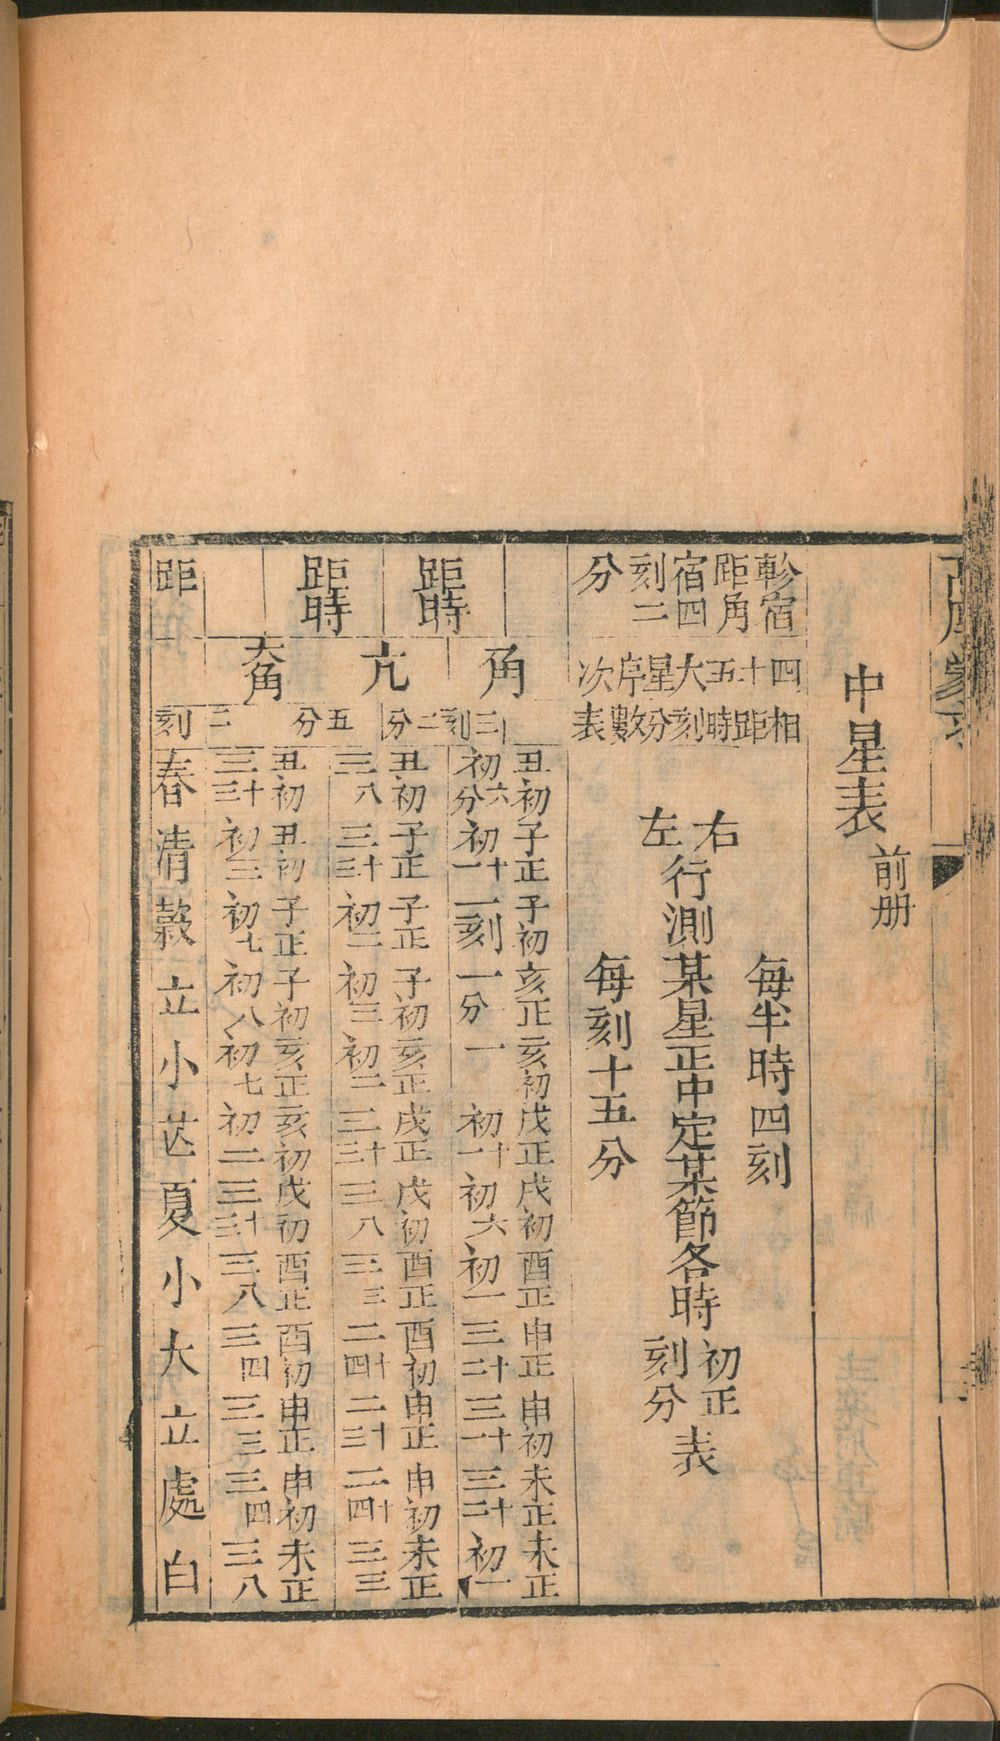 中星表 前册
軫宿距角宿四刻二分
四十五大星序次
相距時刻分數表
每半時四刻
右左行測某星正中定某節各時初正刻分表
每刻十五分
角
丑初 初六分
子正 初十一
子初 一刻
亥正 一分
亥初 一
戌正 初十一
戌初 初六
酉正 初一
申正 三十二
申初 三十一
未正 三十二
未正 初一
距時 三刻二分
亢
丑初 三八
子正 三十三
子正 初二
子初 初三
亥正 初二
戌正 三十三
戌初 三八
酉正 三三
酉初 二十四
申正 二十三
申初 二十四
未正 三三
距時 五分
大角
丑初 三十三
丑初 初三
子正 初七
子初 初八
亥正 初七
亥初 初二
戌初 三十三
酉正 三八
酉初 三四
申正 三三
申初 三四
未正 三八
距 二刻
春清穀立小芒夏小大立處白